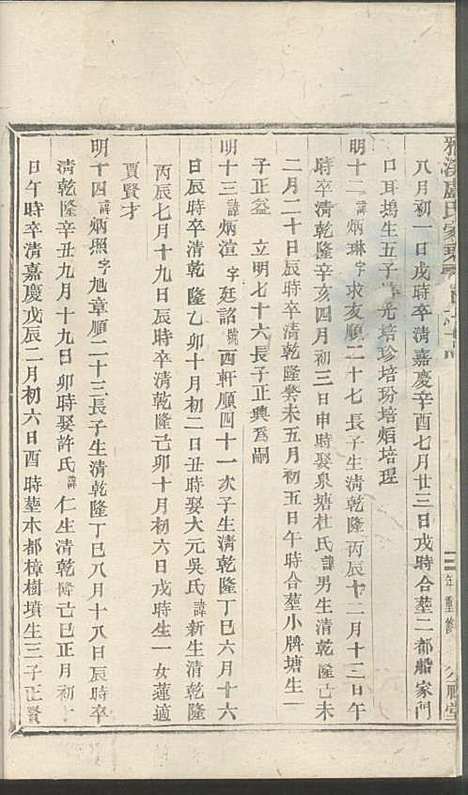 雅溪盧氏家乘
八月初一日戌時卒清嘉慶辛酉七月廿三日戌時合塟二都船家門
口耳塢生五子培光培珍培玢培熖培瑆
明十二諱炳琳字求友順二十七長子生清乾隆丙辰十二月十三日午
時卒清乾隆辛亥四月初三日申時娶泉塘杜氏諱男生清乾隆己未
二月二十日辰時卒清乾隆癸未五月初五日午時合塟小牌塘生一
子正益 立明七十六長子正興為嗣
明十三諱炳渲字廷詔號西軒順四十一次子生清乾隆丁巳六月十六
日辰時卒清乾隆乙卯十月初二日丑時娶大元吳氏諱新生清乾隆
丙辰七月十九日辰時卒清乾隆己卯十月初六日戌時生一女蓮適
賈賢才
明十四諱炳照字旭章順二十三長子生清乾隆丁巳八月十八日辰時卒
清乾隆辛丑九月十九日卯時娶許氏諱仁生清乾隆己巳正月初一
日午時卒清嘉慶戊辰二月初六日酉時塟木都樟樹墳生三子正賢
年重修